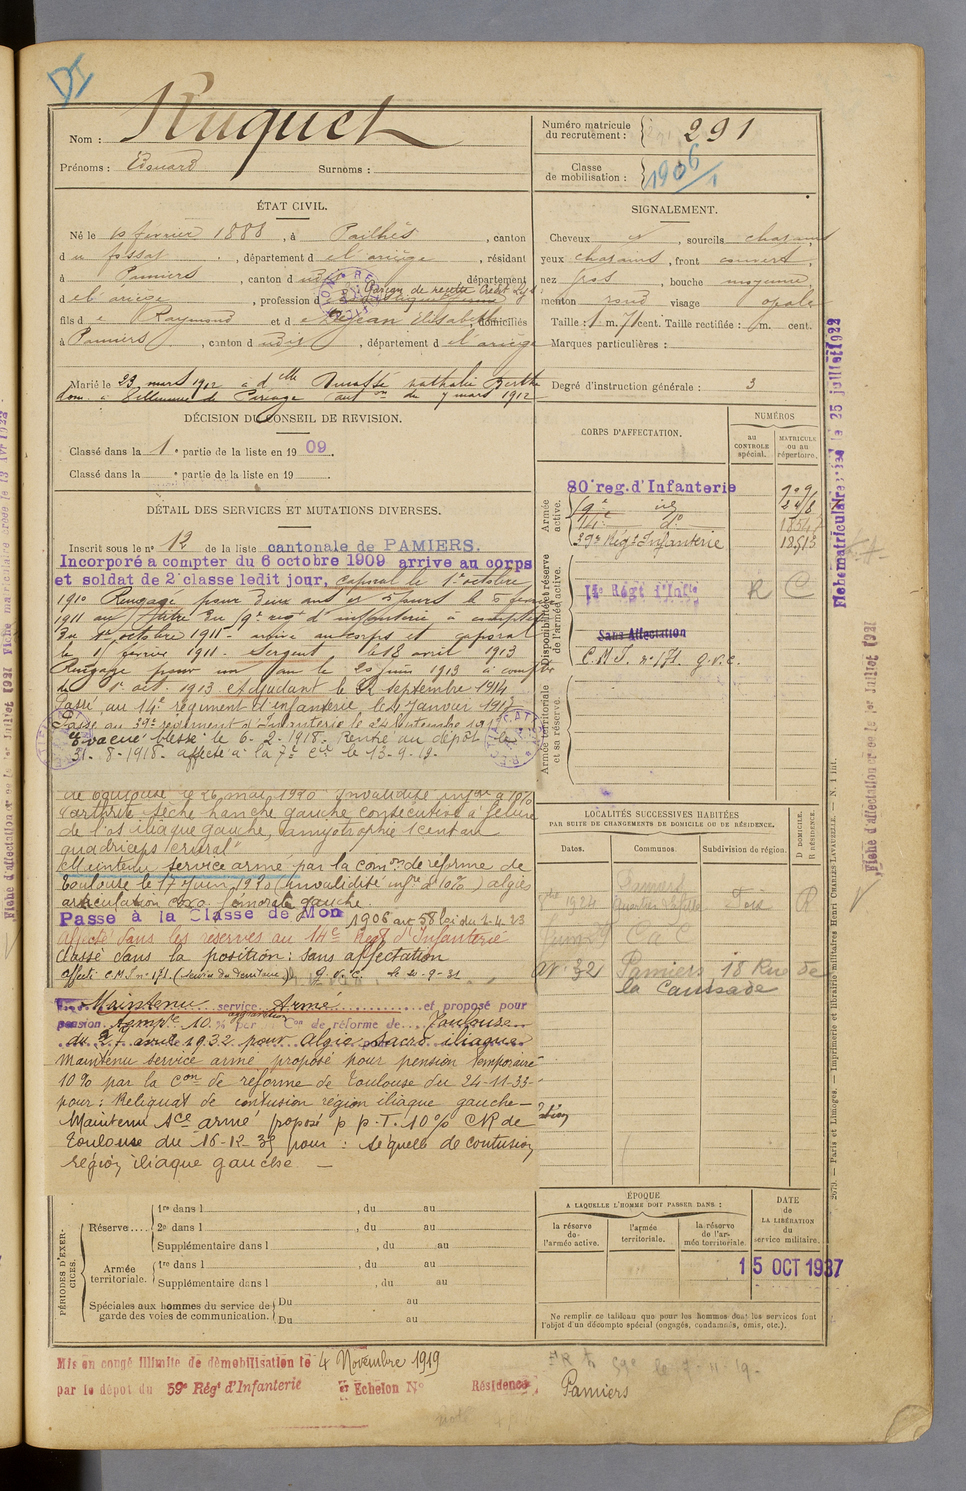 Nom : Huguet
Prénoms : Edouard Surnoms :
Numéro matricule du recrutement : 291
Classe de mobilisation : 1906/1
ÉTAT CIVIL.
Né le 10 février 1888, à Pailhès, canton
du fossat, département de l'ariège, résidant
à Pamiers, canton dudit, département
de l'ariège, profession de Garçon de recette
fils de Raymond et de Dejean Elisabeth, domiciliés
à Pamiers, canton dudit, département de l'ariège
Marié le 23 mars 1912 à dlle nathalie Berthe
dom. à aut. du 7 mars 1912
SIGNALEMENT.
Cheveux , sourcils chatains
yeux chatains, front couvert,
nez gros, bouche moyenne,
menton rond visage opale
Taille : 1 m. 71 cent. Taille rectifiée : m. cent.
Marques particulières :
Degré d'instruction générale : 3
DÉCISION DU CONSEIL DE REVISION.
Classé dans la 1e partie de la liste en 1909
Classé dans la e partie de la liste en 19
DÉTAIL DES SERVICES ET MUTATIONS DIVERSES.
Inscrit sous le n° 12 de la liste cantonale de PAMIERS.
Incorporé a compter du 6 octobre 1909 arrive au corps
et soldat de 2e classe ledit jour, caporal le 1er octobre
1910 Rengagé pour deux ans et jours le 5
1911 au titre du 9e regt d'infanterie à compter
du 1er octobre 1911 - arrivé au corps et caporal
le 1 février 1911 - Sergent le 18 avril 1913
Rengagé pour un an le 20 juin 1913 à compter
du 1er oct. 1913 et adjudant le 12 septembre 1914
Passé au 14e régiment d'infanterie le 4 Janvier 1917
Passé au 39e régiment d'Infanterie le 24
Evacué blessé le 6-2-1918. Rentré au dépôt le
31-8-1918. affecté à la 7e Cie le 13-9-19
de Toulouse le 26 mai 1920 Invalidité infre à 10%
"arthrite sèche hanche gauche consécutive à fêlure
de l'os iliaque gauche, amyotrophie 1 cent au
quadriceps crural"
Maintenu service armé par la comon de réforme de
Toulouse le 17 Juin 1920 (invalidité infre à 10%) algies
articulation coxo-fémorale gauche.
Passé à la Classe de Mon 1906 art 58 loi du 1-4-23
Affecté dans les réserves au 14e Regt d'Infanterie
Classé dans la position : sans affectation
affecté C.M.I. n° 171 (service du territoire) g.v.c. le 2-9-31
Maintenu service Armé et proposé pour
pension tempre 10 % par Con de réforme de Toulouse
du 27 avril 1932 pour Algie sacro iliaque
Maintenu service armé proposé pour pension temporaire
10% par la Con de réforme de Toulouse du 24-11-33-
pour : Reliquat de contusion région iliaque gauche -
Maintenu Sce armé proposé p p.T. 10% CR de
Toulouse du 16-12-35 pour : séquelle de contusion
région iliaque gauche -
CORPS D'AFFECTATION.
NUMÉROS
au CONTROLE spécial.
MATRICULE ou au répertoire.
Armée active.
80e reg. d'Infanterie
9e
14e do 18547
39e Régt Infanterie 12513
Disponibilité et réserve de l'armée active.
14e Régt d'Infie R C
Sans Affectation
C.M.I. n° 171. g.v.c.
Armée territoriale et sa réserve.
LOCALITÉS SUCCESSIVES HABITÉES
PAR SUITE DE CHANGEMENTS DE DOMICILE OU DE RÉSIDENCE.
Dates. Communes. Subdivision de région. D DOMICILE. R RÉSIDENCE.
1924 Pamiers Foix R
32 Pamiers 18 Rue de
la Caussade
PÉRIODES D'EXERCICES.
Réserve.... 1re dans l , du au
2e dans l , du au
Supplémentaire dans l , du au
Armée territoriale. 1re dans l , du au
Supplémentaire dans l , du au
Spéciales aux hommes du service de garde des voies de communication. Du au
Du au
ÉPOQUE
A LAQUELLE L'HOMME DOIT PASSER DANS :
la réserve de l'armée active.
l'armée territoriale.
la réserve de l'armée territoriale.
DATE
de
LA LIBÉRATION
du
service militaire.
15 OCT 1937
Ne remplir ce tableau que pour les hommes dont les services font
l'objet d'un décompte spécial (engagés, condamnés, omis, etc.).
Mis en congé illimité de démobilisation le 4 Novembre 1919
par le dépôt du 59e Régt d'Infanterie er Echelon N° Résidence Pamiers
2679. — Paris et Limoges. — Imprimerie et librairie militaires Henri CHARLES-LAVAUZELLE. — N. 1 int.
Fiche matriculaire le 25 juillet 1922
Fiche d'affectation créée le 1er Juillet 1921